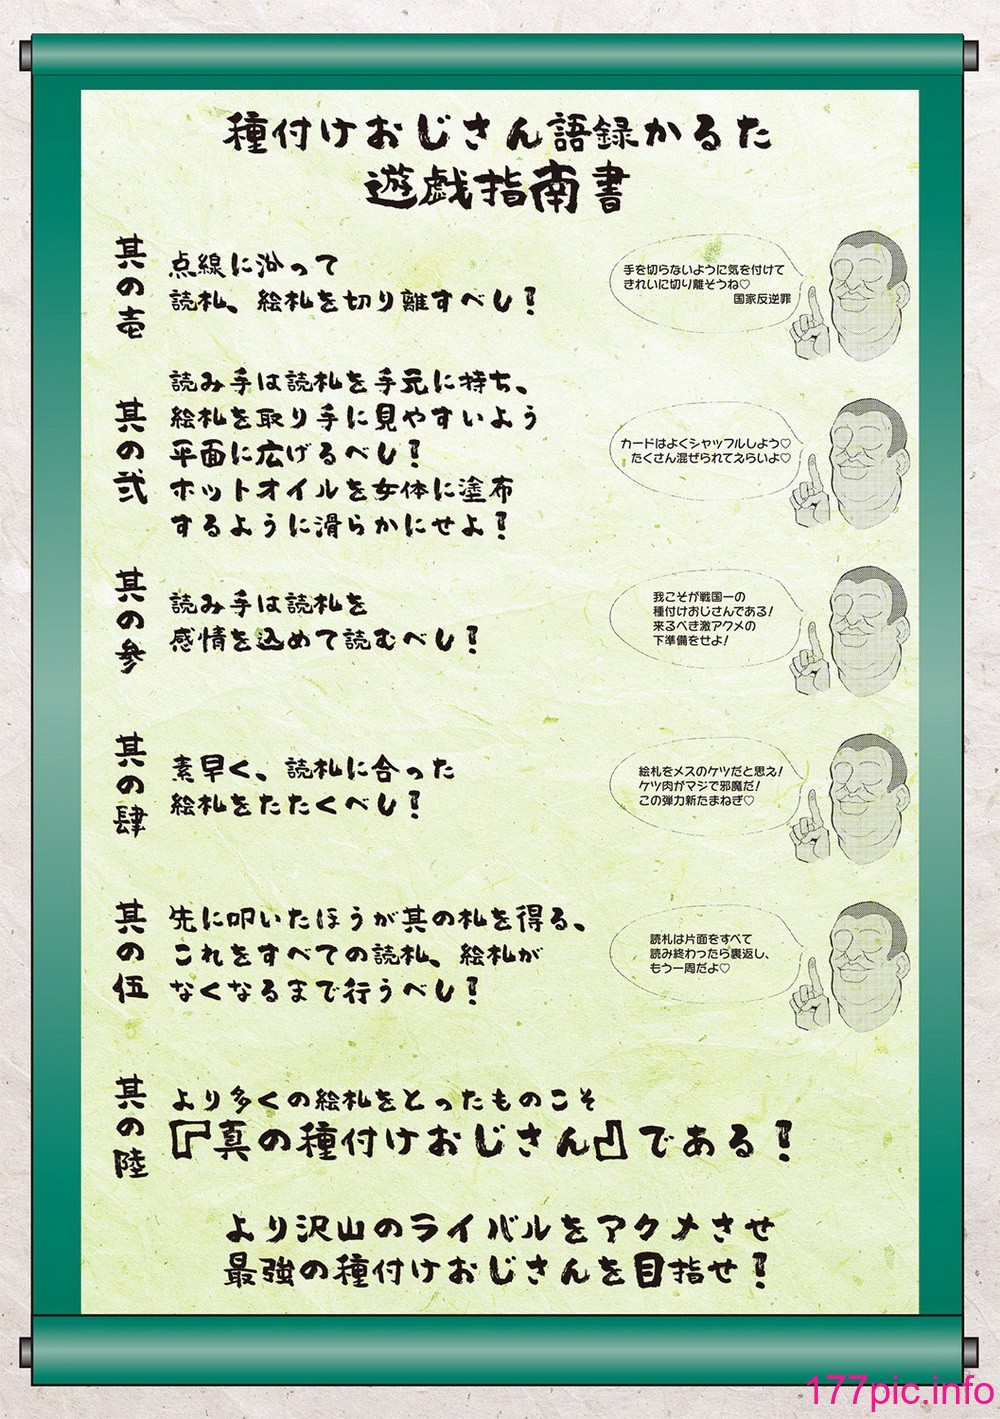 種付けおじさん語録かるた
遊戯指南書
其の壱
点線に沿って
読札、絵札を切り離すべし！
手を切らないように気を付けて
きれいに切り離そうね♡
国家反逆罪
其の弐
読み手は読札を手元に持ち、
絵札を取り手に見やすいよう
平面に広げるべし！
ホットオイルを女体に塗布
するように滑らかにせよ！
カードはよくシャッフルしよう♡
たくさん混ぜられてえらいよ♡
其の参
読み手は読札を
感情を込めて読むべし！
我こそが戦国一の
種付けおじさんである！
来るべき激アクメの
下準備をせよ！
其の肆
素早く、読札に合った
絵札をたたくべし！
絵札をメスのケツだと思え！
ケツ肉がマジで邪魔だ！
この弾力新たまねぎ♡
其の伍
先に叩いたほうが其の札を得る、
これをすべての読札、絵札が
なくなるまで行うべし！
読札は片面をすべて
読み終わったら裏返し、
もう一周だよ♡
其の陸
より多くの絵札をとったものこそ
『真の種付けおじさん』である！
より沢山のライバルをアクメさせ
最強の種付けおじさんを目指せ！
177pic.info